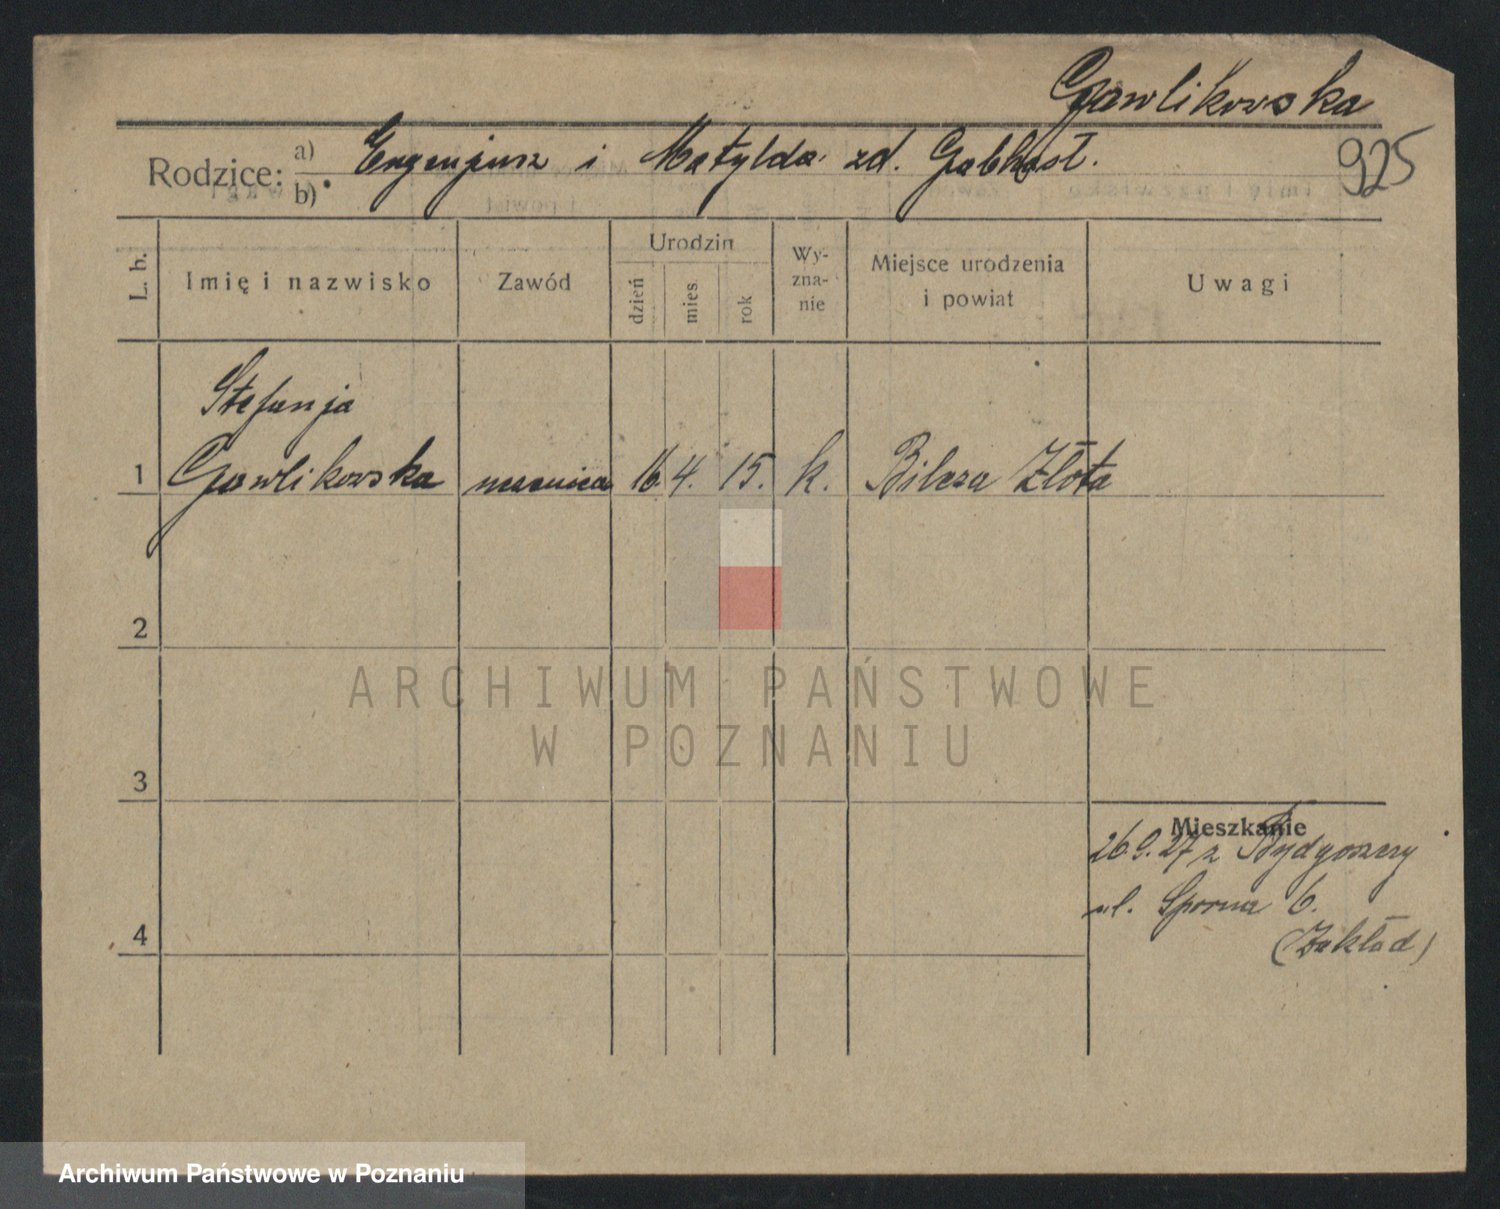 Gawlikowska
925
Rodzice: a) Eugenjusz i Matylda zd.
b)
L. b. Imię i nazwisko Zawód Urodzin dzień mies. rok Wy-zna-nie Miejsce urodzenia i powiat Uwagi
Stefanja
1 Gawlikowska uczenica 16 4. 15. k. Bilcza Złota
2
ARCHIWUM PAŃSTWOWE
W POZNANIU
3
Mieszkanie
26.9.27 z Bydgoszczy
ul. Sporna 6.
4 (Zakład)
Archiwum Państwowe w Poznaniu